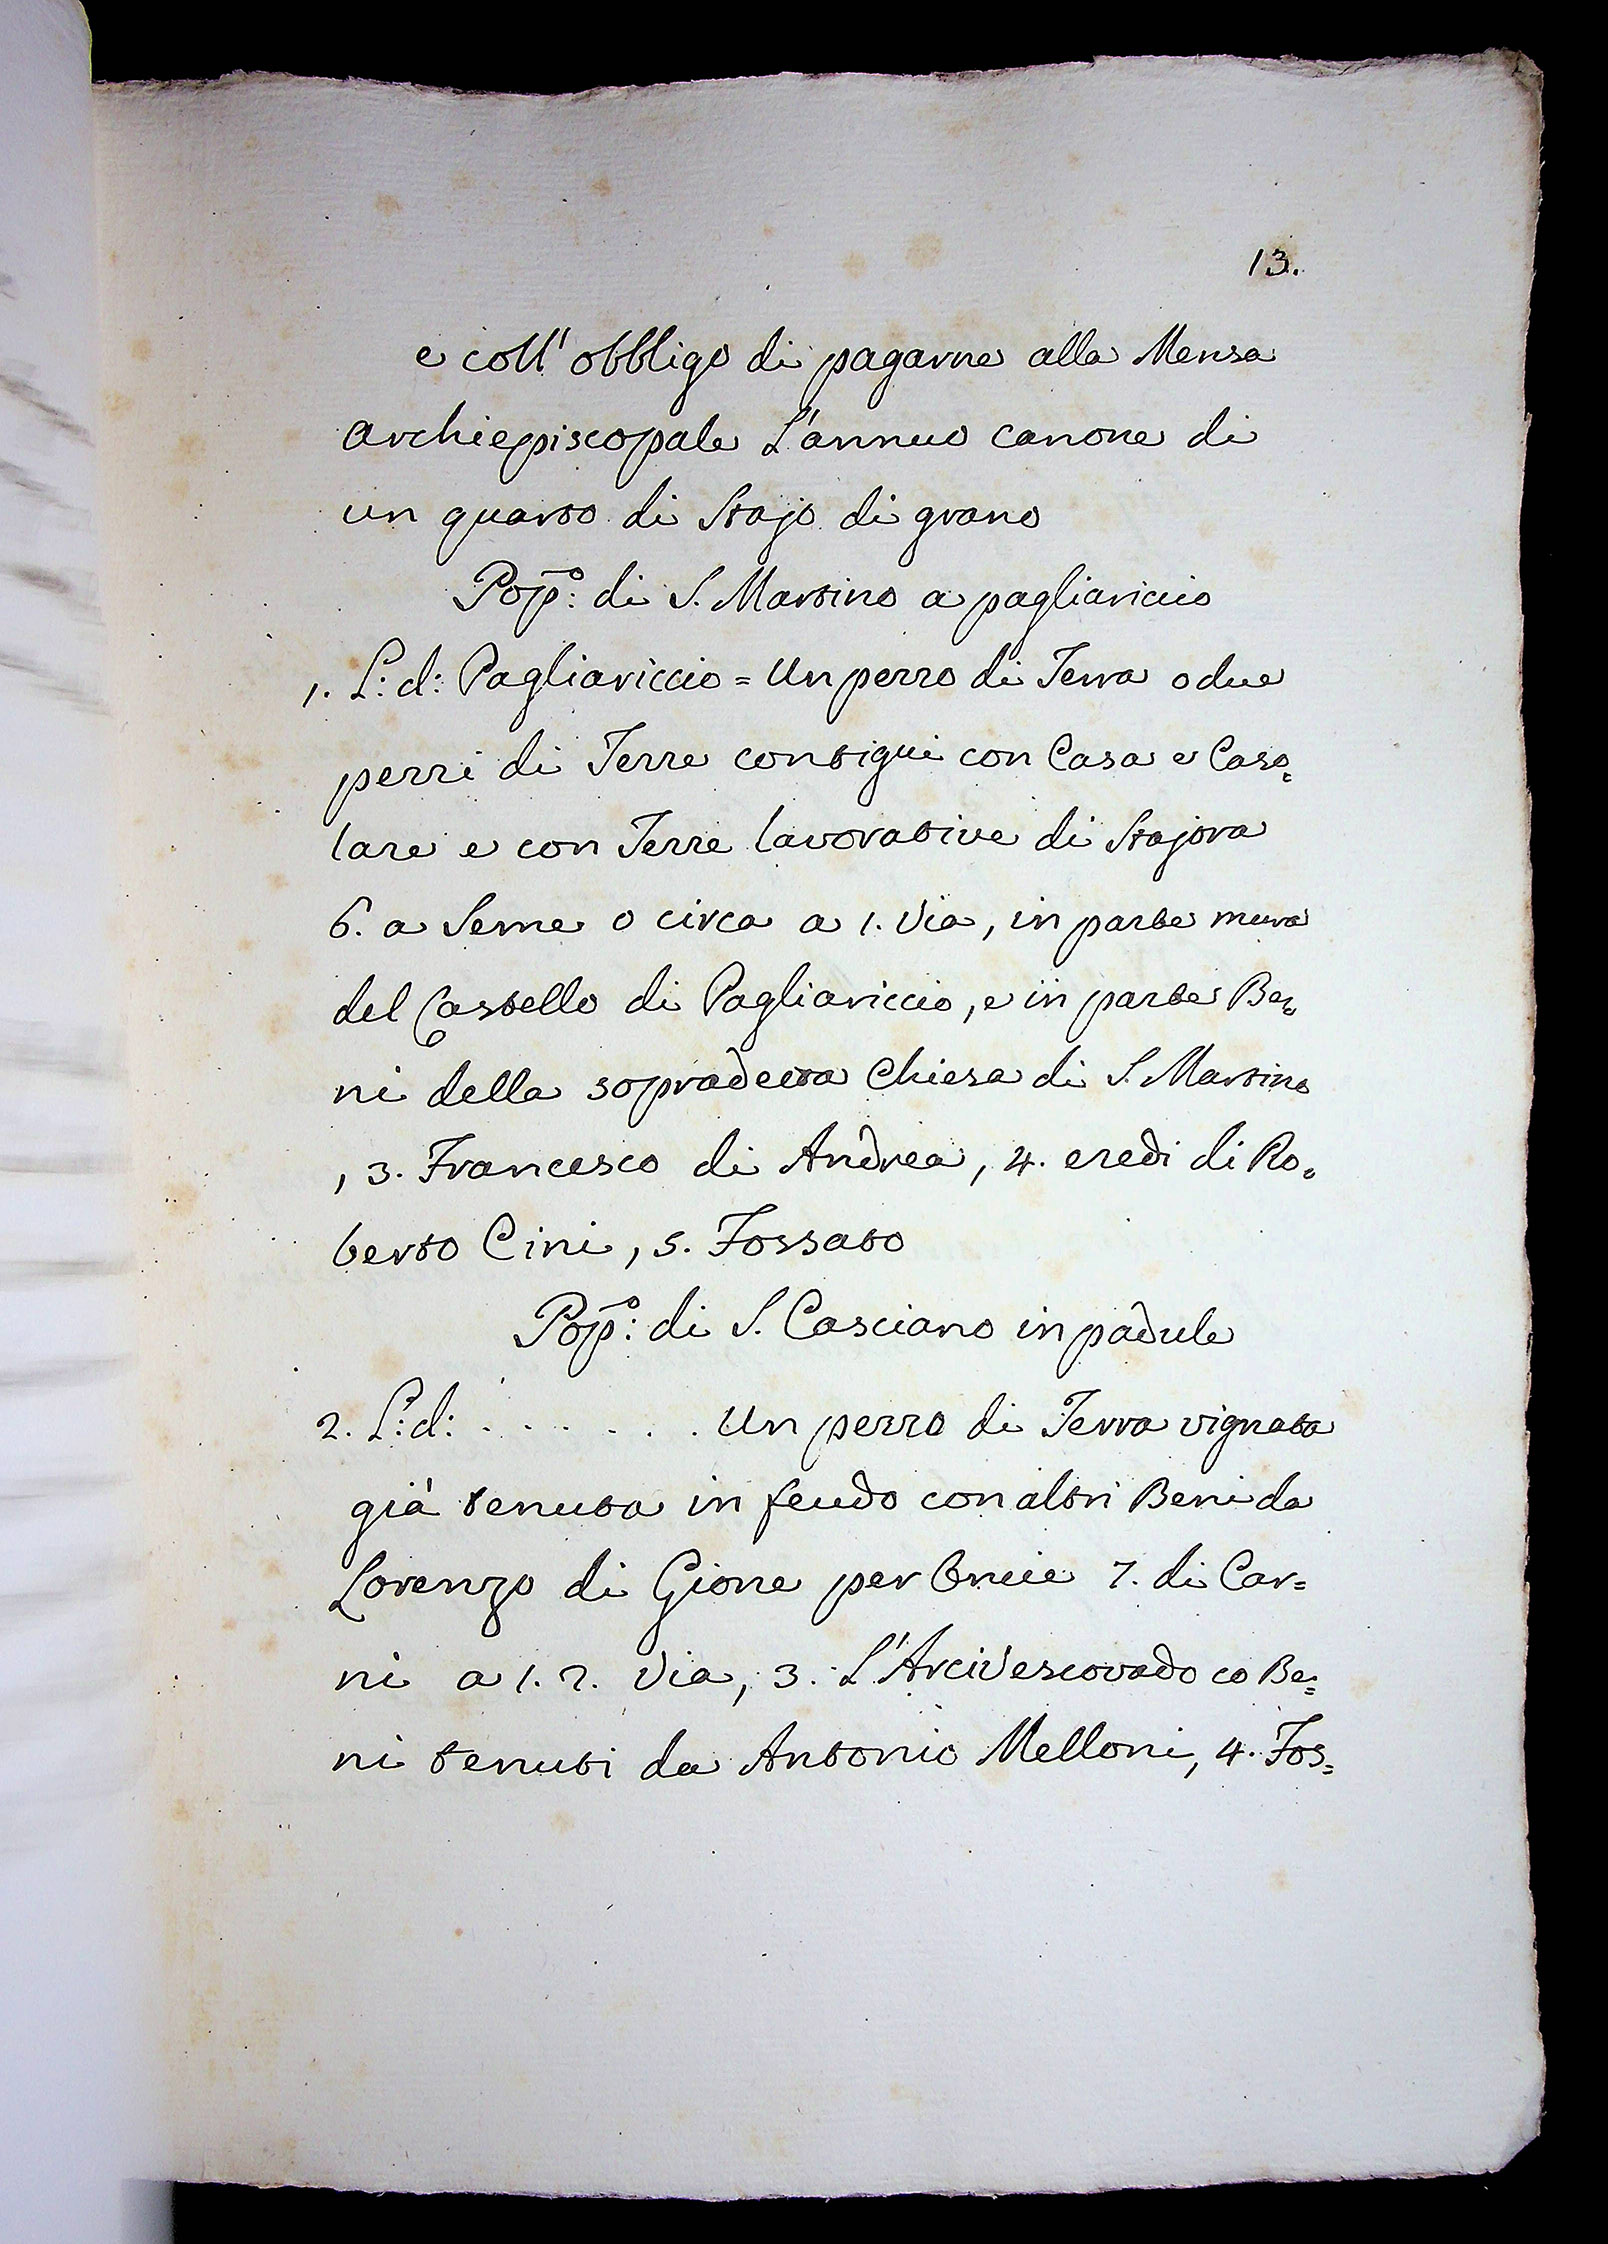 13.
e coll' obbligo di pagarne alla Mensa
Archiepiscopale L'annuo canone di
un quarto di Stajo di grano
Pop:º di S. Martino a pagliariccio
1. L: d: Pagliariccio = Un pezzo di Terra o due
pezzi di Terre contigui con Casa e Caso=
lare e con Terre lavorative di Stajora
6. a Seme o circa a 1. Via, in parte mura
del Castello di Pagliariccio, e in parte Be=
ni della sopradetta Chiesa di S. Martino
, 3. Francesco di Andrea, 4. eredi di Ro=
berto Cini, 5. Fossato
Pop:º di S. Casciano in padule
2. L: d: . . . . . . . Un pezzo di Terra vignata
già tenuta in feudo con altri Beni da
Lorenzo di Gione per Oncie 7. di Car=
ni a 1. 2. Via, 3. L'Arcivescovado co Be=
ni tenuti da Antonio Melloni, 4. Fos=